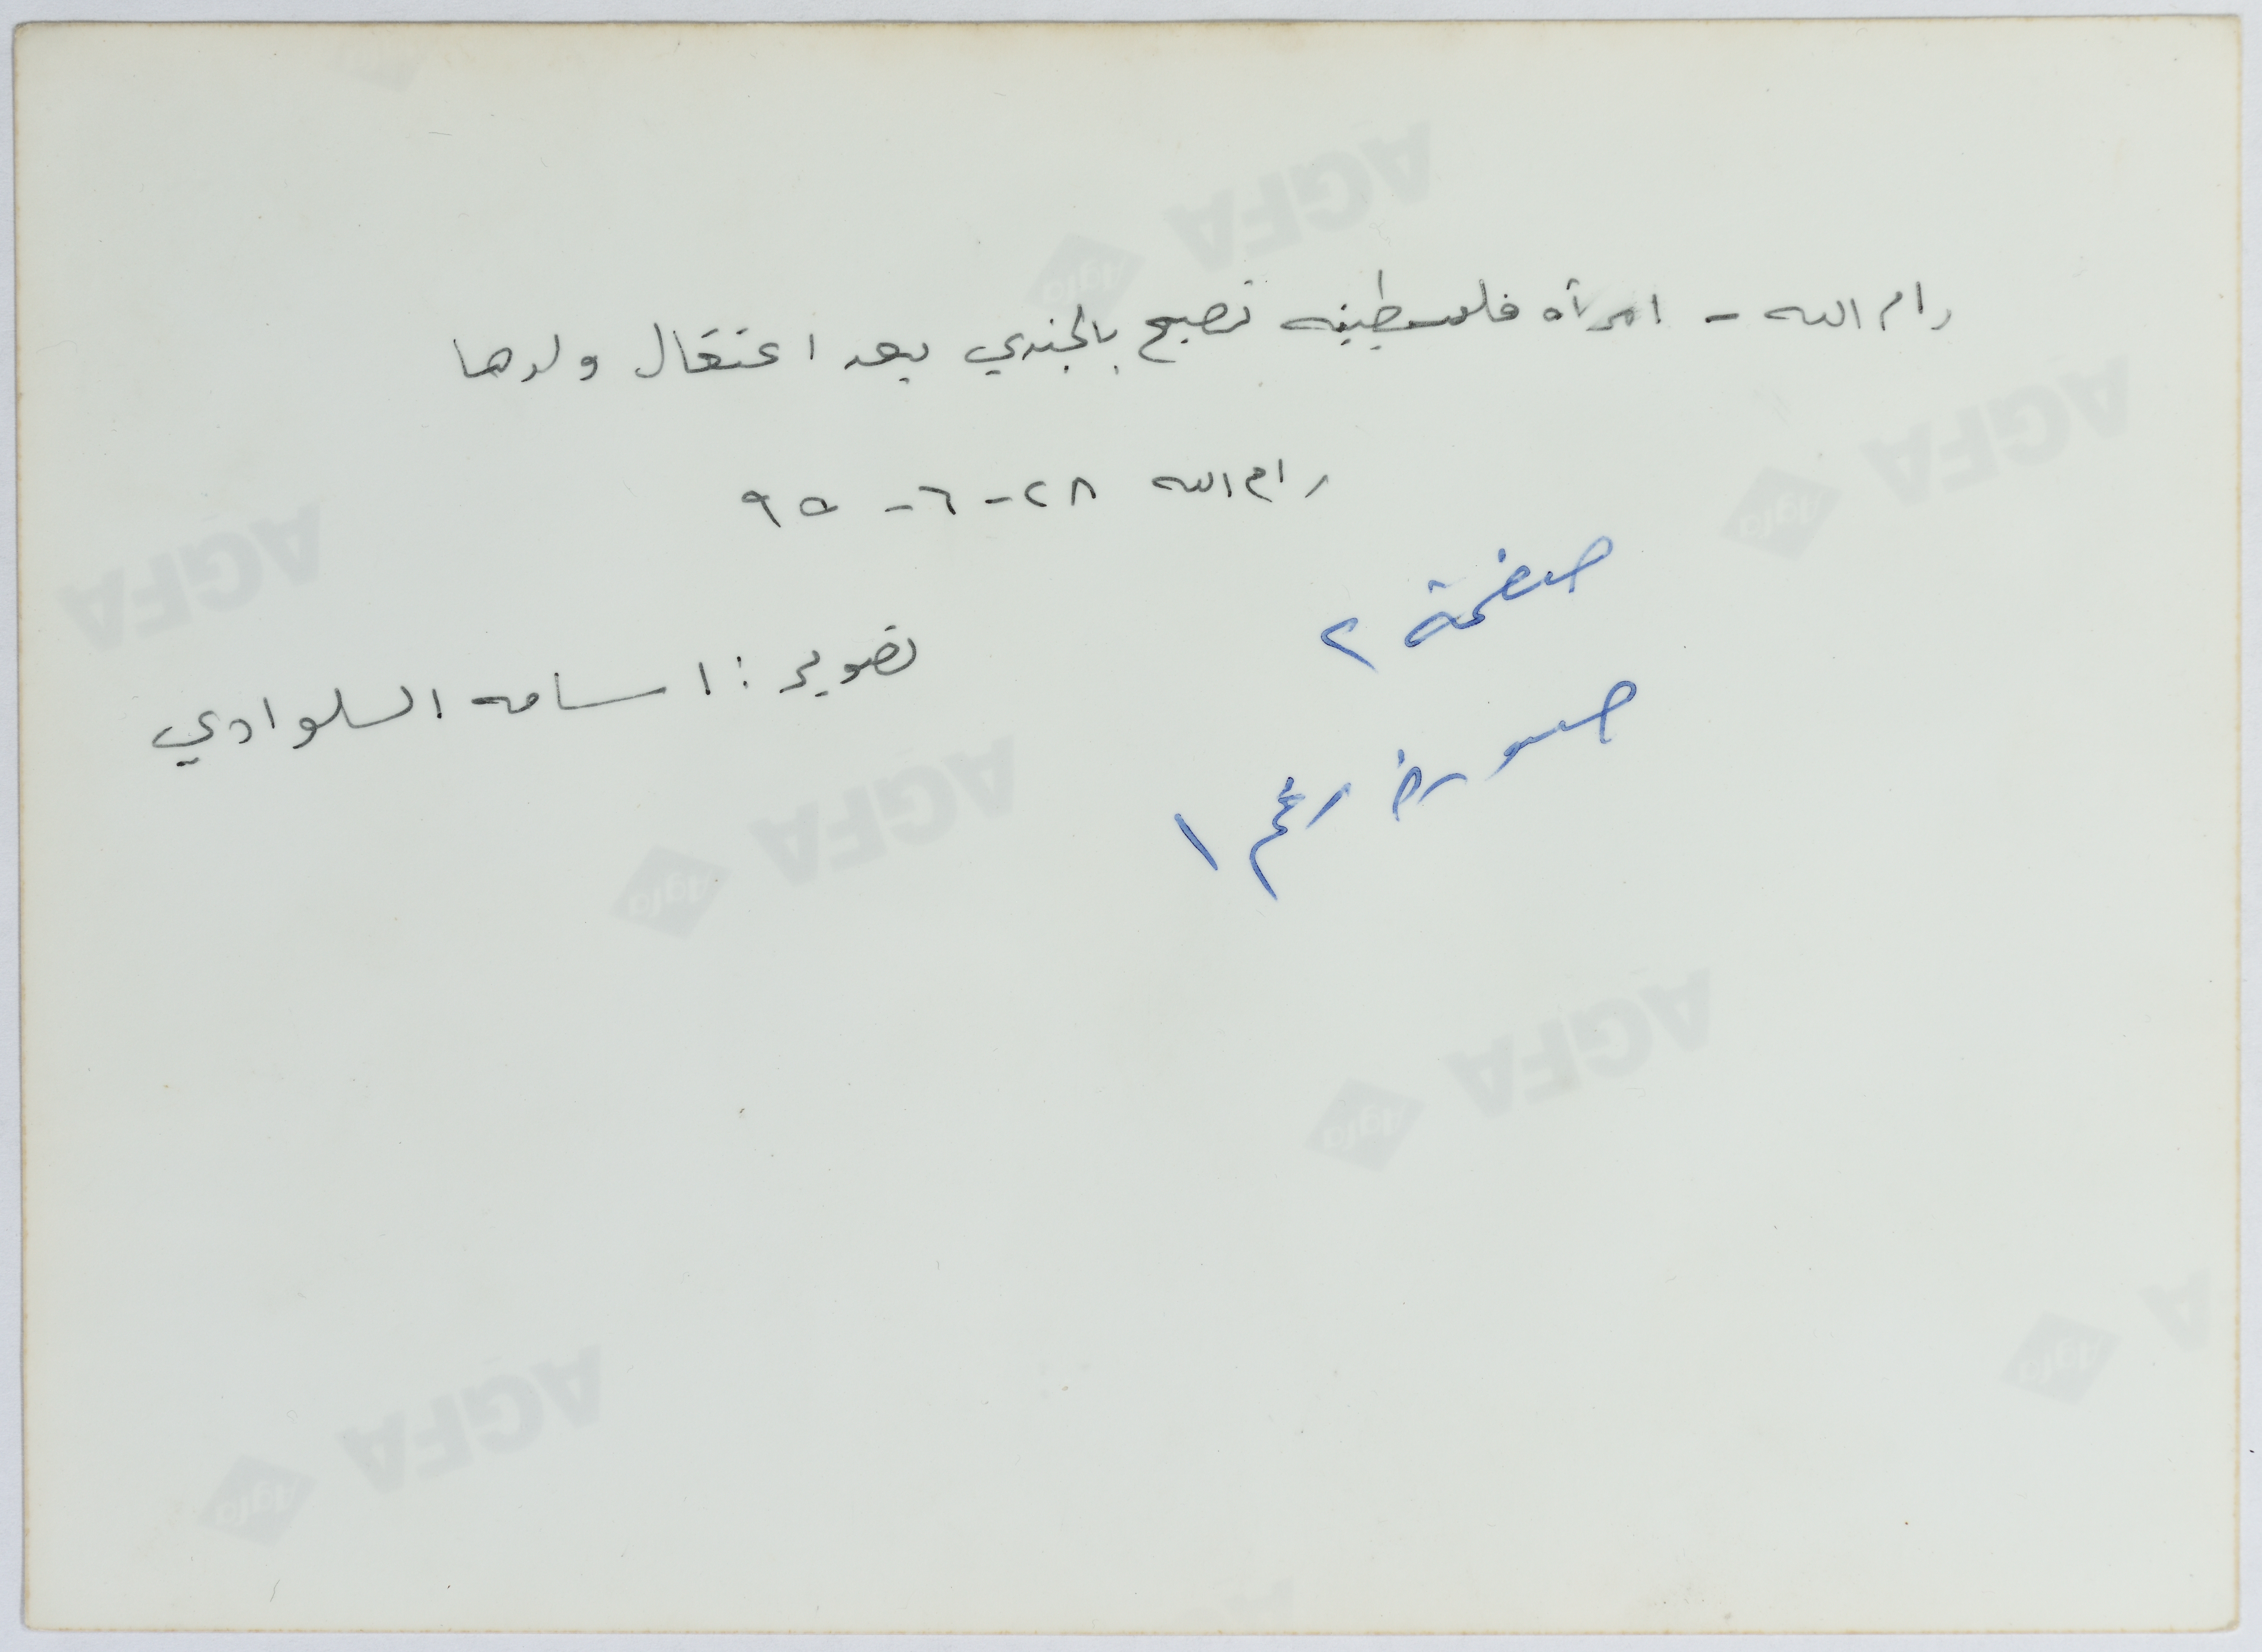 رام الله - امرأه فلسطينيه تصيح بالجندي بعد اعتقال ولدها
رام الله ٢٨-٦-٩٥
صفحة ٢
تصوير: اسامه السلوادي
صورة رقم ١
AGFA
Agfa